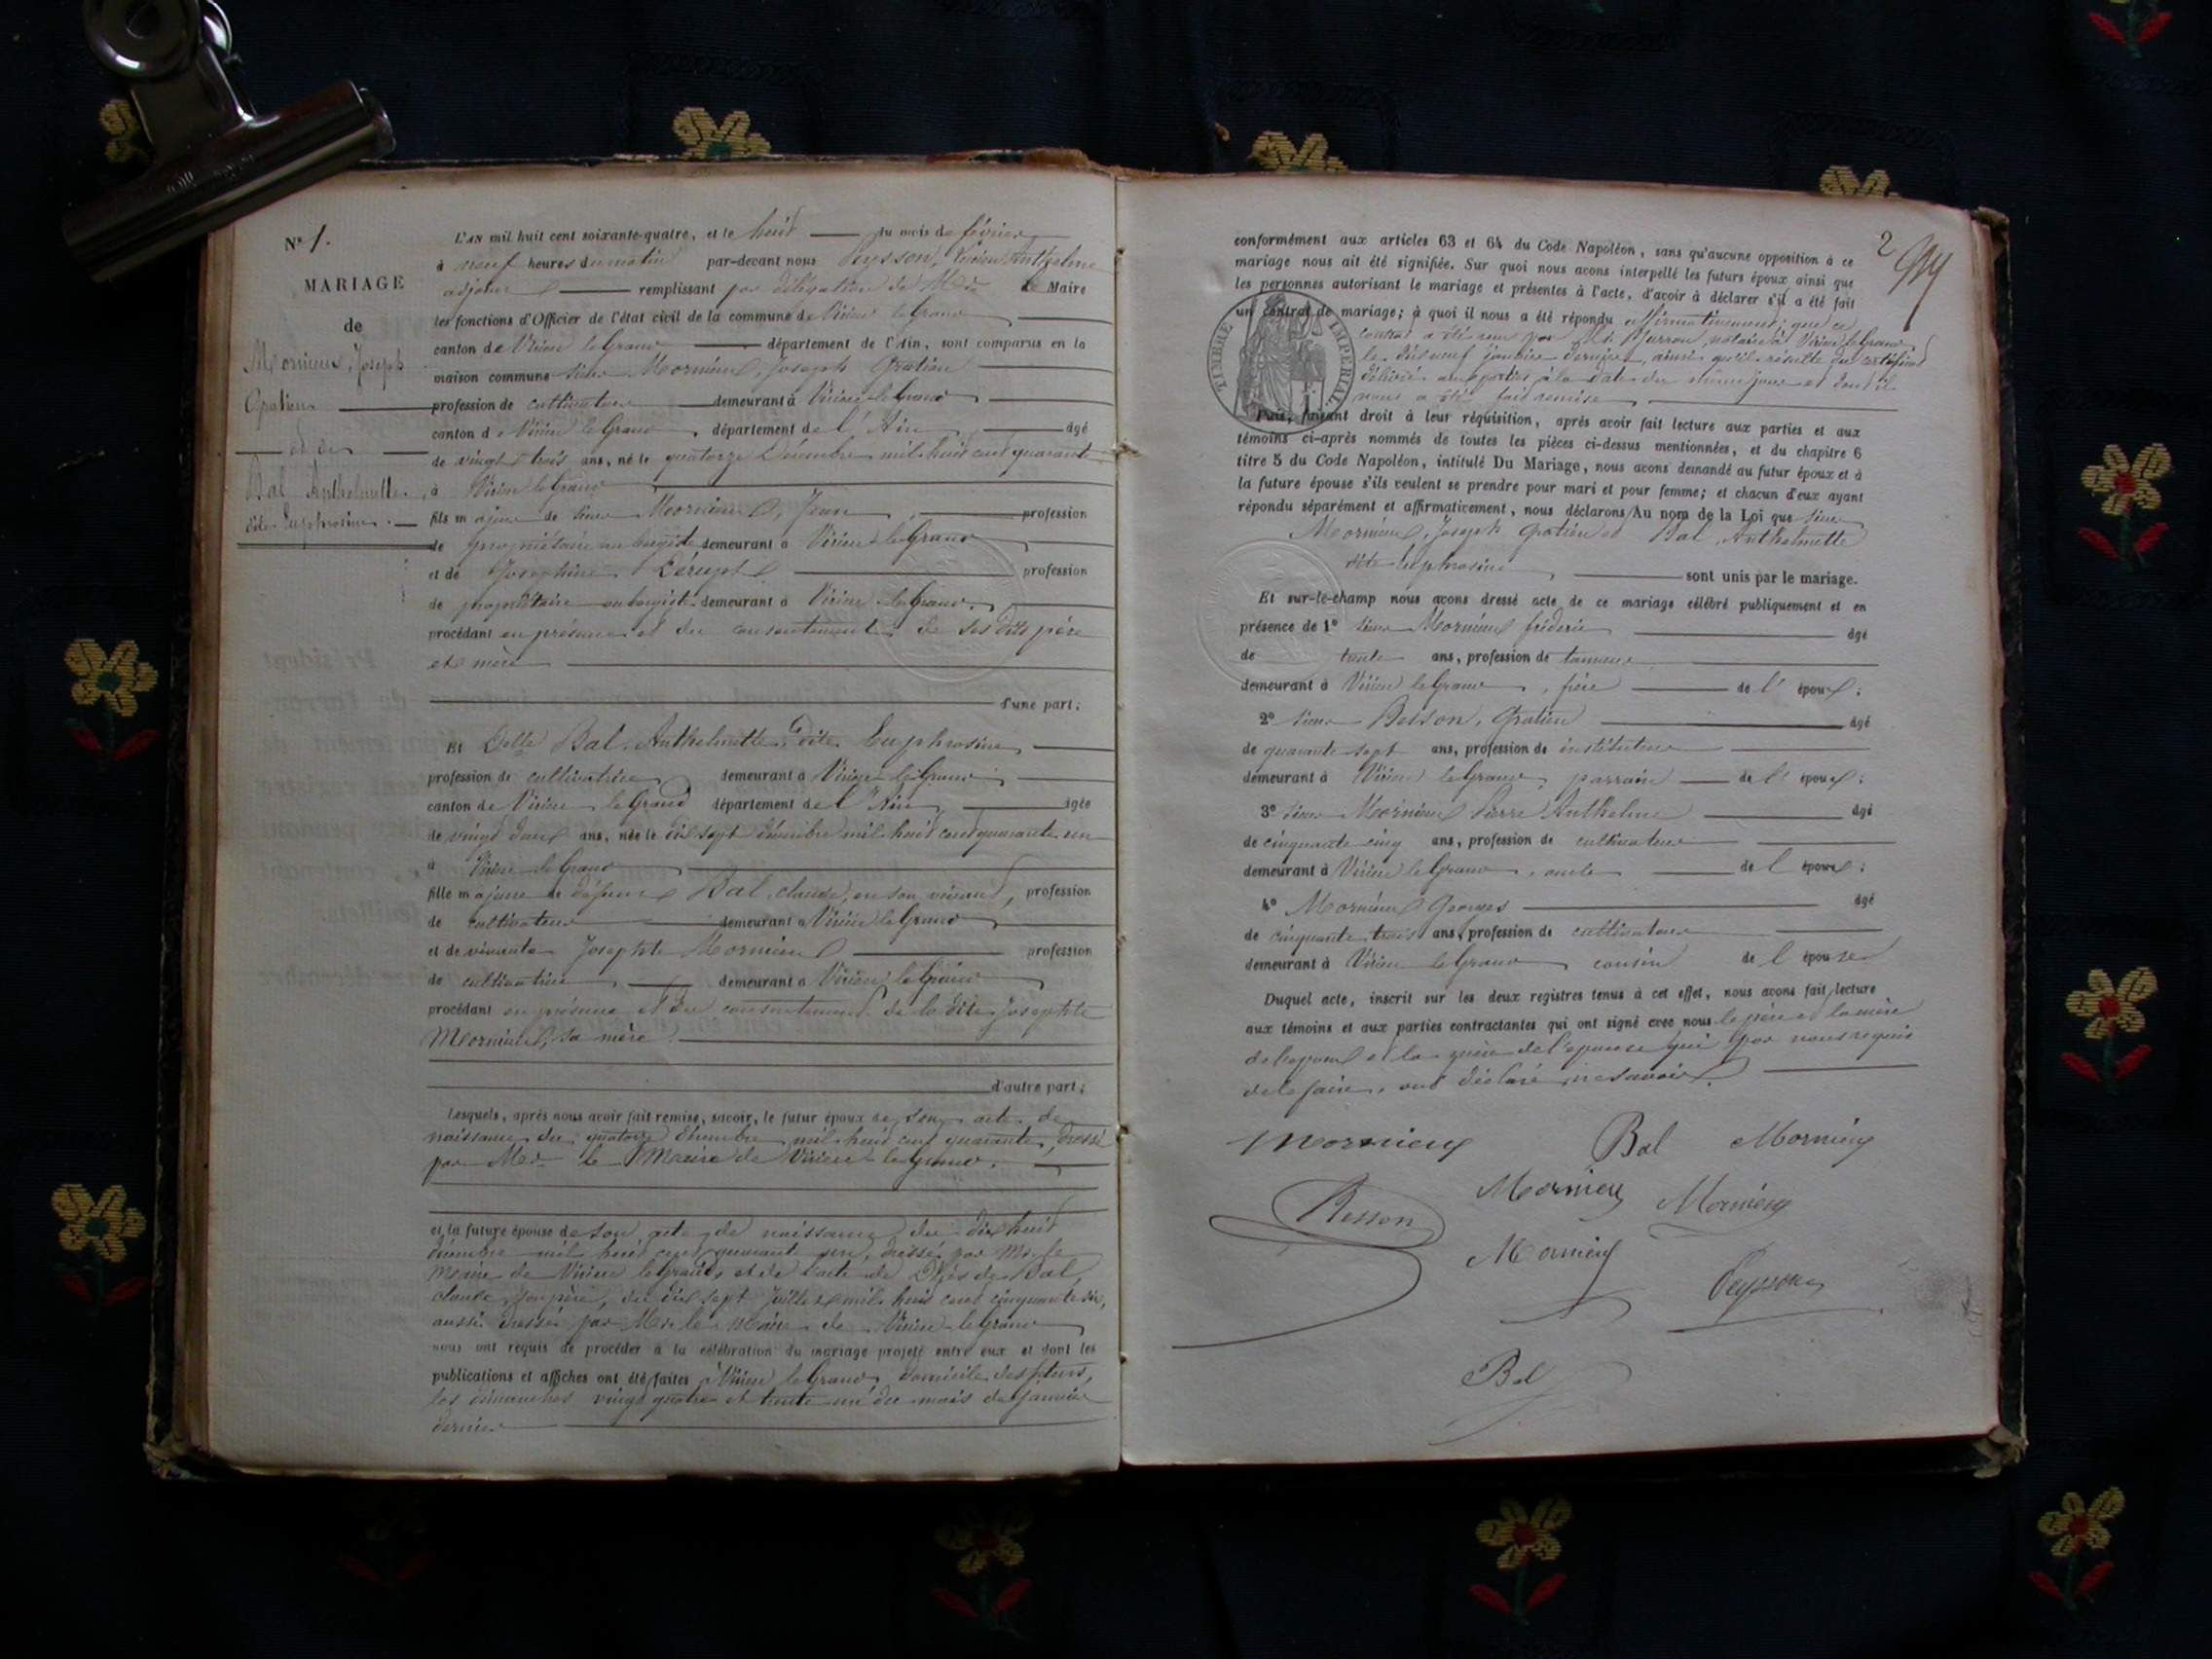 N° 1.
MARIAGE
de
Mornieux, Joseph
Gratien
et de
Bal Anthelmette
dite Euphrosine.
L'AN mil huit cent soixante-quatre, et le huit du mois de février
à neuf heures du matin par-devant nous Peysson, Anthelme
adjoint remplissant par délégation de Mr le Maire
les fonctions d'Officier de l'état civil de la commune de Virieu le Grand
canton de Virieu le Grand département de l'Ain, sont comparus en la
maison commune sieur Mornieux, Joseph Gratien
profession de cultivateur demeurant à Virieu le Grand
canton de Virieu le Grand, département de l'Ain, âgé
de vingt trois ans, né le quatorze Décembre mil huit cent quarante
à Virieu le Grand
fils majeur de sieur Mornieux, Jean, profession
de propriétaire aubergiste demeurant à Virieu le Grand
et de Josephine profession
de propriétaire aubergiste demeurant à Virieu le Grand.
procédant en présence et du consentement de ses dits père
et mère
d'une part;
Et Delle Bal, Anthelmette, dite Euphrosine,
profession de cultivatrice demeurant à Virieu le Grand
canton de Virieu le Grand département de l'Ain, âgée
de vingt deux ans, née le dix sept décembre mil huit cent quarante un
à Virieu le Grand
fille majeure de défunt Bal, claude, en son vivant, profession
de cultivateur demeurant à Virieu le Grand
et de vivante Josephte Mornieux profession
de cultivatrice demeurant à Virieu le Grand
procédant en présence et du consentement de la dite Josephte
Mornieux, sa mère.
d'autre part;
Lesquels, après nous avoir fait remise, savoir, le futur époux de son acte de
naissance du quatorze décembre mil huit cent quarante, dressé
par Mr le Maire de Virieu le Grand.
et la future épouse de son acte de naissance du dix huit
décembre mil huit cent quarante un, dressé par Mr le
Maire de Virieu le Grand, et de l'acte de Décès de Bal,
claude, son père, du dix sept Juillet mil huit cent cinquante six,
aussi dressé par Mr le Maire de Virieu le Grand
nous ont requis de procéder à la célébration du mariage projeté entre eux et dont les
publications et affiches ont été faites à Virieu le Grand, domicile des futurs,
les dimanches vingt quatre et trente un du mois de Janvier
dernier
2
conformément aux articles 63 et 64 du Code Napoléon, sans qu'aucune opposition à ce
mariage nous ait été signifiée. Sur quoi nous avons interpellé les futurs époux ainsi que
les personnes autorisant le mariage et présentes à l'acte, d'avoir à déclarer s'il a été fait
un contrat de mariage; à quoi il nous a été répondu affirmativement; que ce
contrat a été reçu par Me notaire à Virieu le Grand
le dix neuf janvier dernier, ainsi qu'il résulte du certificat
délivré aux parties à la date du même jour et dont il
nous a été fait remise
TIMBRE IMPERIAL
Puis, faisant droit à leur réquisition, après avoir fait lecture aux parties et aux
témoins ci-après nommés de toutes les pièces ci-dessus mentionnées, et du chapitre 6
titre 5 du Code Napoléon, intitulé Du Mariage, nous avons demandé au futur époux et à
la future épouse s'ils veulent se prendre pour mari et pour femme; et chacun d'eux ayant
répondu séparément et affirmativement, nous déclarons Au nom de la Loi que sieur
Mornieux, Joseph Gratien et Bal, Anthelmette
dite Euphrosine sont unis par le mariage.
Et sur-le-champ nous avons dressé acte de ce mariage célébré publiquement et en
présence de 1° sieur Mornieux frédéric âgé
de trente ans, profession de tanneur
demeurant à Virieu le Grand, frère de l'époux;
2° sieur Besson, Gratien âgé
de quarante sept ans, profession de instituteur
demeurant à Virieu le Grand, parrain de l'époux;
3° sieur Mornieux Pierre Anthelme âgé
de cinquante cinq ans, profession de cultivateur
demeurant à Virieu le Grand, oncle de l'époux;
4° Mornieux Georges âgé
de cinquante trois ans, profession de cultivateur
demeurant à Virieu le Grand cousin de l'épouse
Duquel acte, inscrit sur les deux registres tenus à cet effet, nous avons fait lecture
aux témoins et aux parties contractantes qui ont signé avec nous le père et la mère
de l'époux et la mère de l'épouse qui par nous requis
de le faire, ont déclaré ne savoir.
Mornieux Bal Mornieux
Mornieux Mornieux
Besson
Mornieux
Peysson
Bal